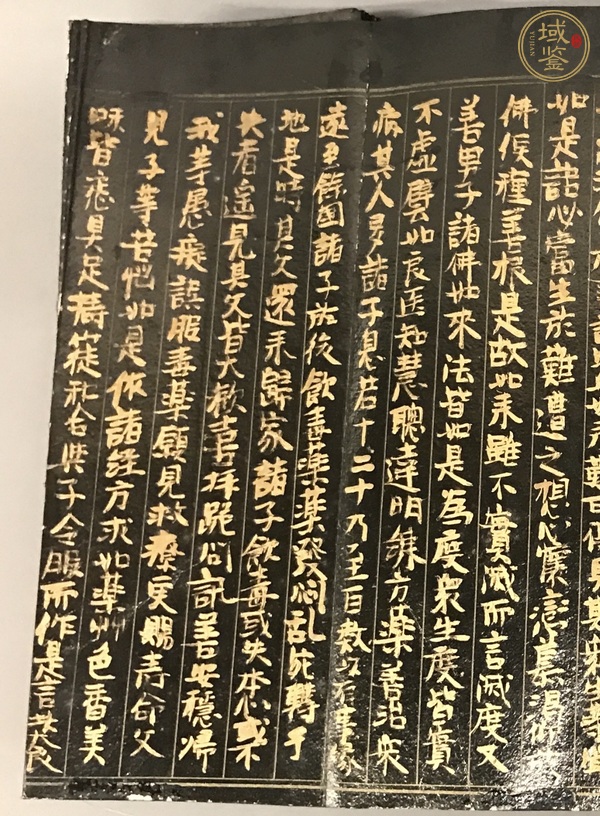 域鉴
YUJIAN
如是語必當生於難遭之想心懷戀慕渴仰於
佛便種善根是故如来雖不實滅而言滅度又
善男子諸佛如来法皆如是為度衆生度皆實
不虚譬如良医知慧聰達明練方薬善治衆
病其人多諸子息若十二十乃至百數以有事縁
遠至餘国諸子於後飲毒薬薬發悶乱宛轉于
地是時其父還来歸家諸子飲毒或失本心或不
失者遥見其父皆大歡喜拜跪問訊善安穩歸
我等愚癡誤服毒薬願見救療更賜壽命父
見子等苦惱如是依諸經方求好薬艸色香美
味皆悉具足擣篩和合與子令服而作是言此大良